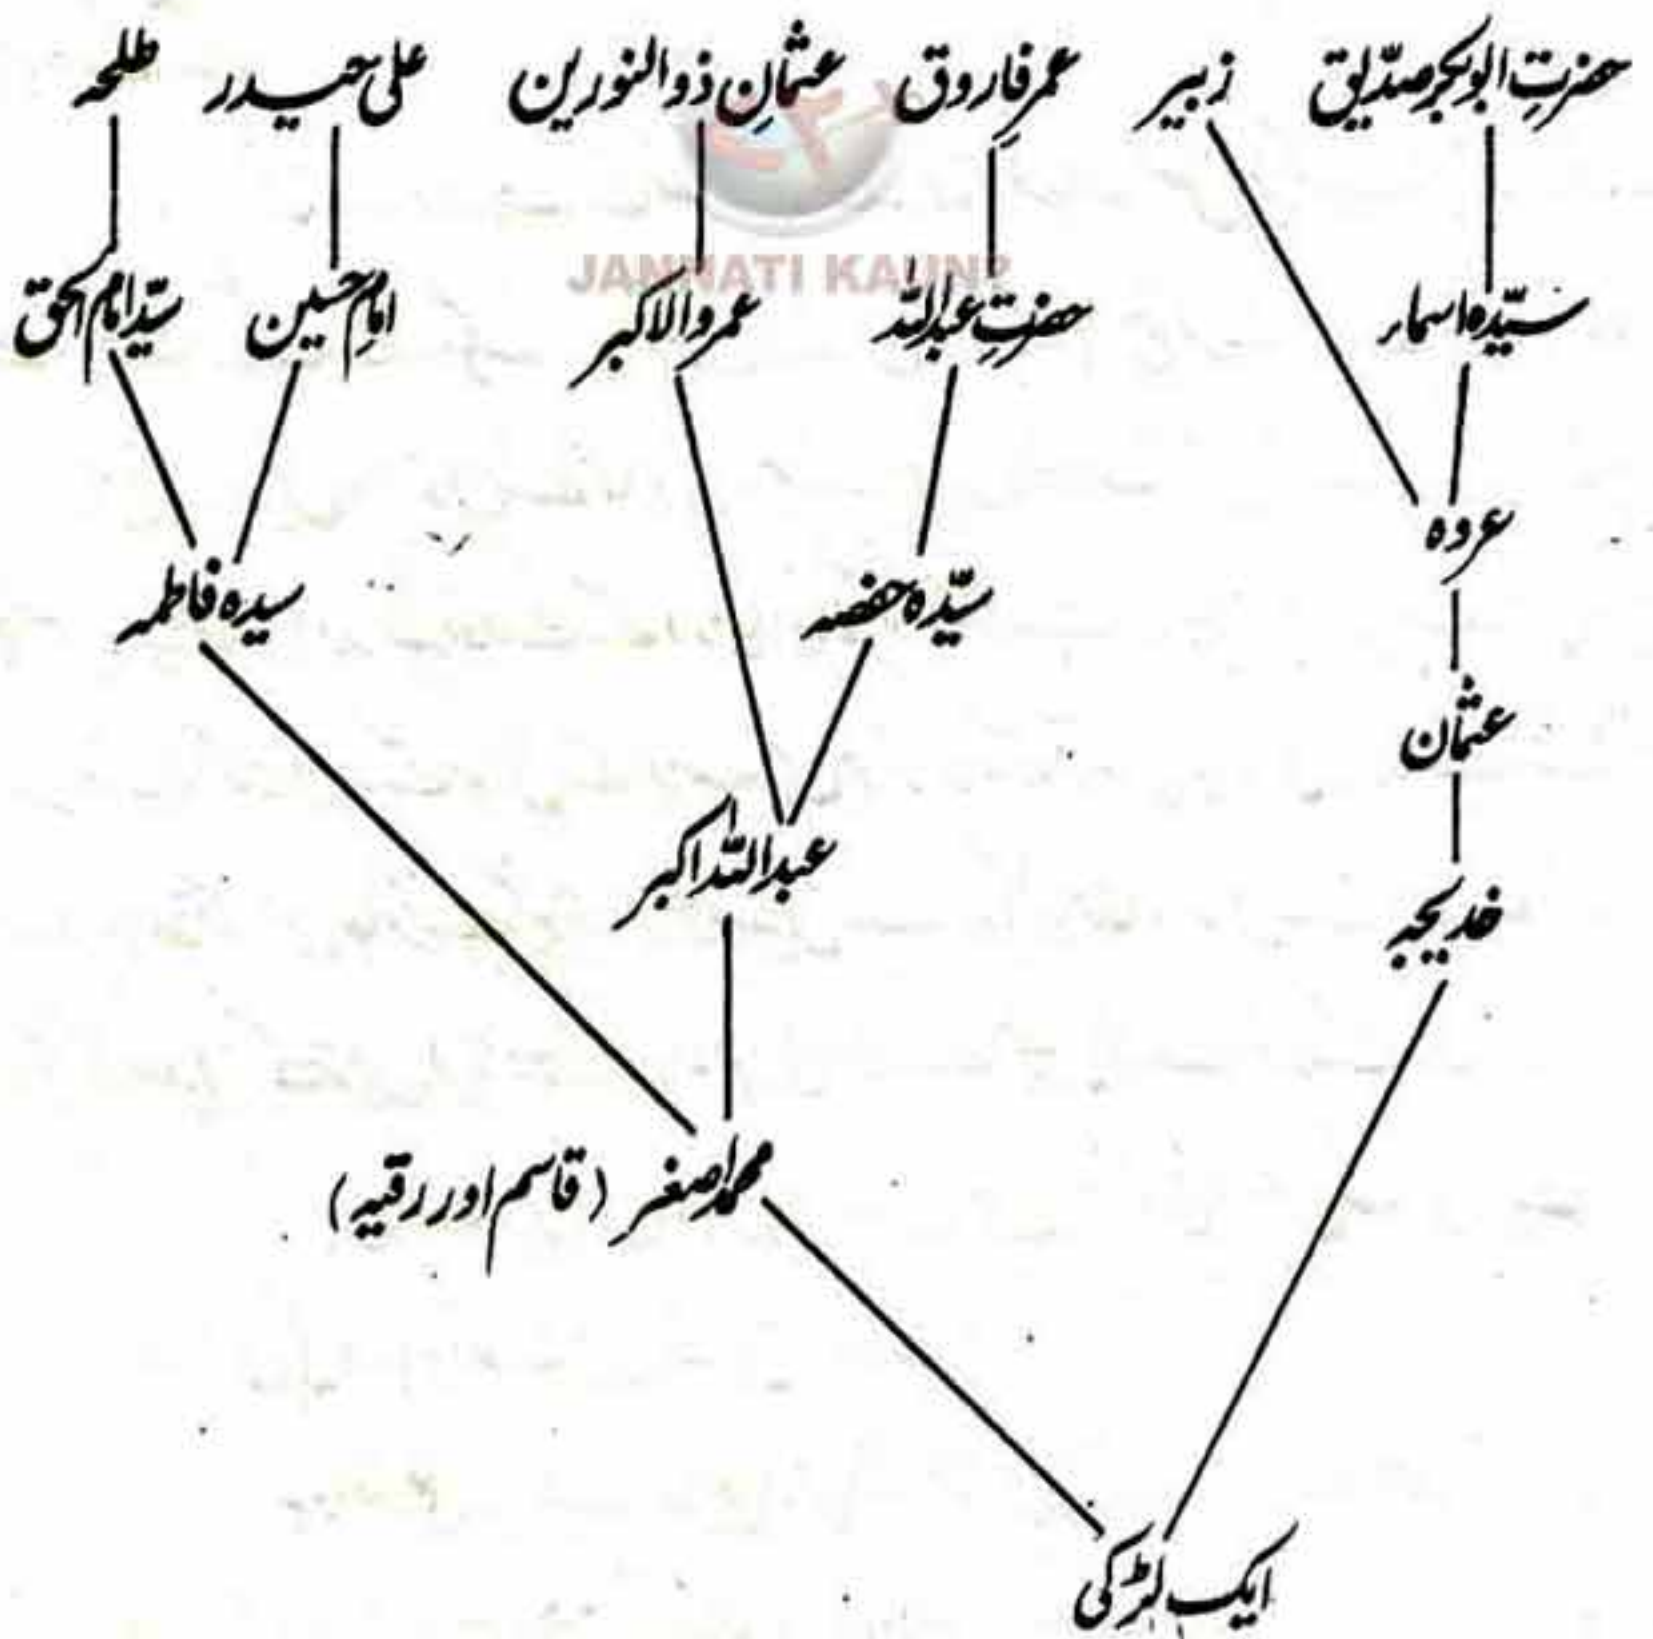 حضرتِ ابوبکر صدّیق زبیر عمرِ فاروق عثمانِ ذوالنورین علی حیدر طلحہ
JANNATI KAUN?
سیّدہ اسمار حضرتِ عبداللہ عمرو الاکبر امام حسین سیّد امام الحق
عروہ
سیّدہ حفصہ سیدہ فاطمہ
عثمان
عبداللہ اکبر
خدیجہ
محمد اصغر (قاسم اور رقیہ)
ایک لڑکی